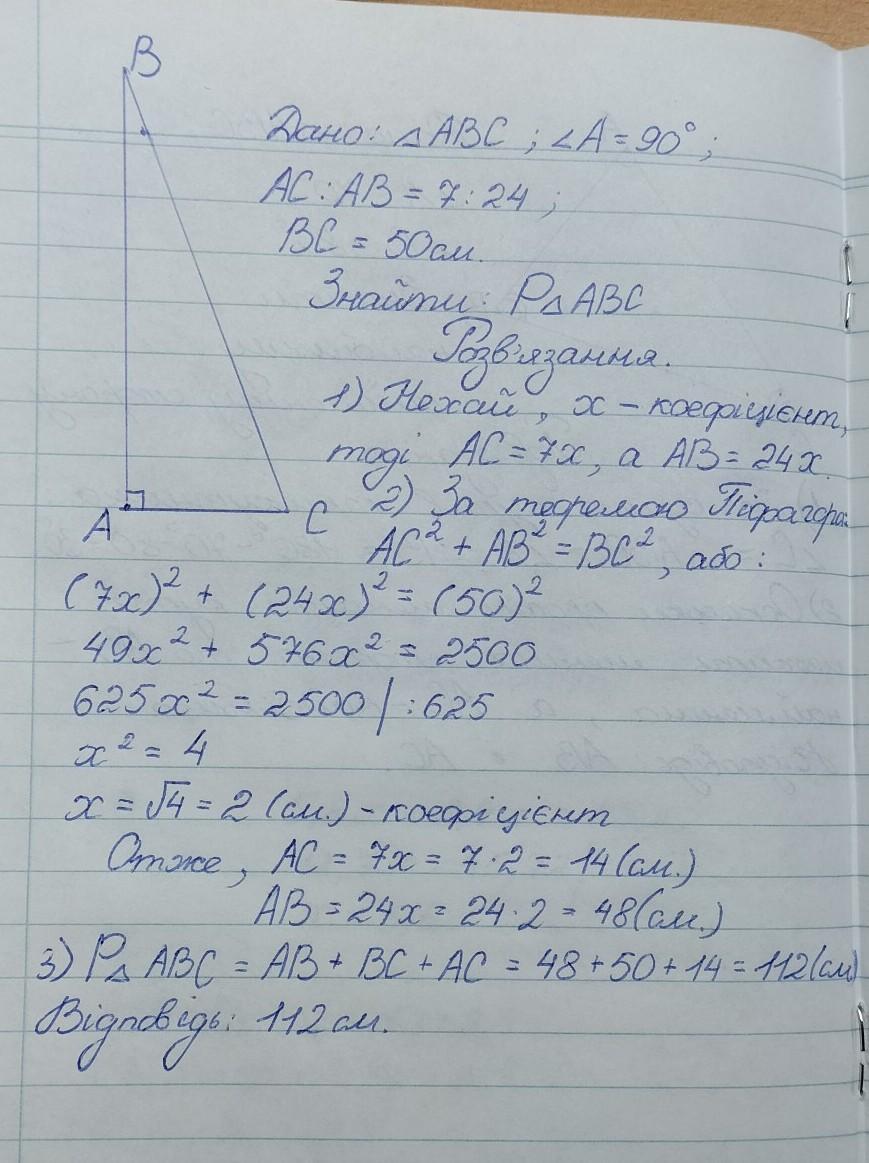 B
Дано: △ABC ; ∠A = 90° ;
AC : AB = 7 : 24 ;
BC = 50 см.
Знайти: P△ ABC
Розв'язання.
1) Нехай, x – коефіцієнт,
тоді AC = 7x, а AB = 24x.
A C 2) За теоремою Піфагора:
AC² + AB² = BC², або :
(7x)² + (24x)² = (50)²
49x² + 576x² = 2500
625x² = 2500 | : 625
x² = 4
x = √4 = 2 (см.) – коефіцієнт
Отже, AC = 7x = 7 · 2 = 14 (см.)
AB = 24x = 24 · 2 = 48 (см.)
3) P△ ABC = AB + BC + AC = 48 + 50 + 14 = 112 (см)
Відповідь: 112 см.